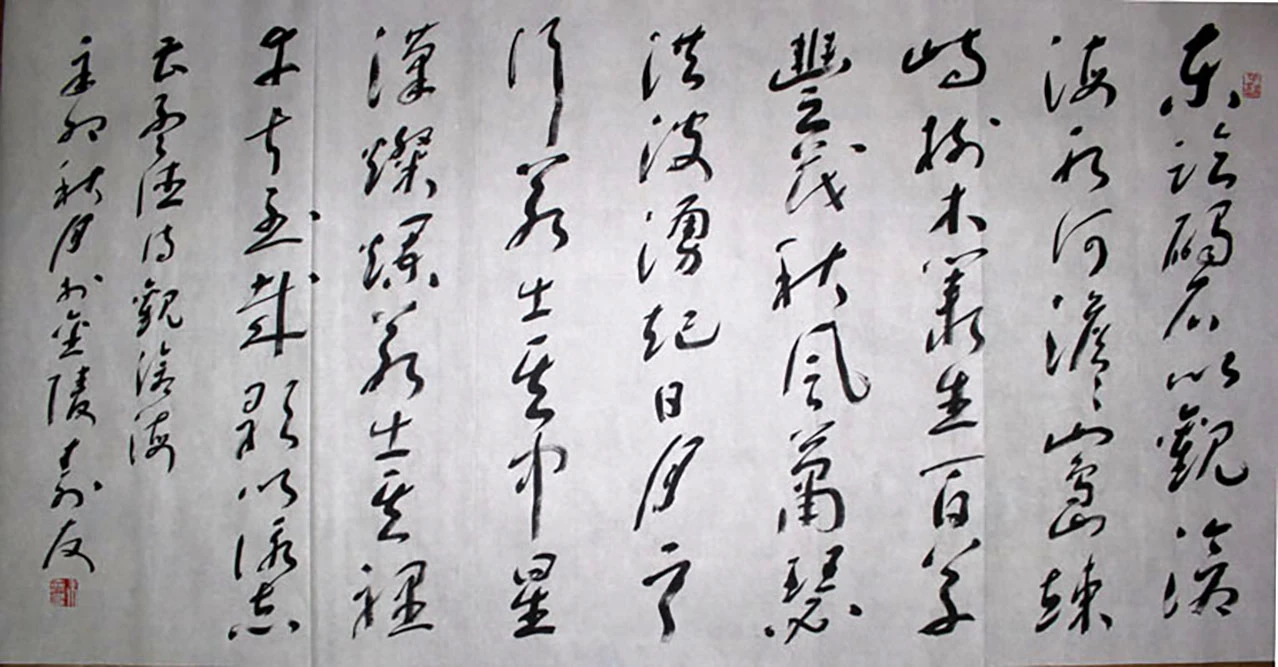 東臨碣石以觀滄
海水何澹々山島竦
峙樹木叢生百草
豐茂秋風蕭瑟
洪波湧起日月之
行若出其中星
漢燦爛若出其裡
幸甚至哉歌以詠志
曹孟德詩觀滄海
辛卯秋月於金陵友